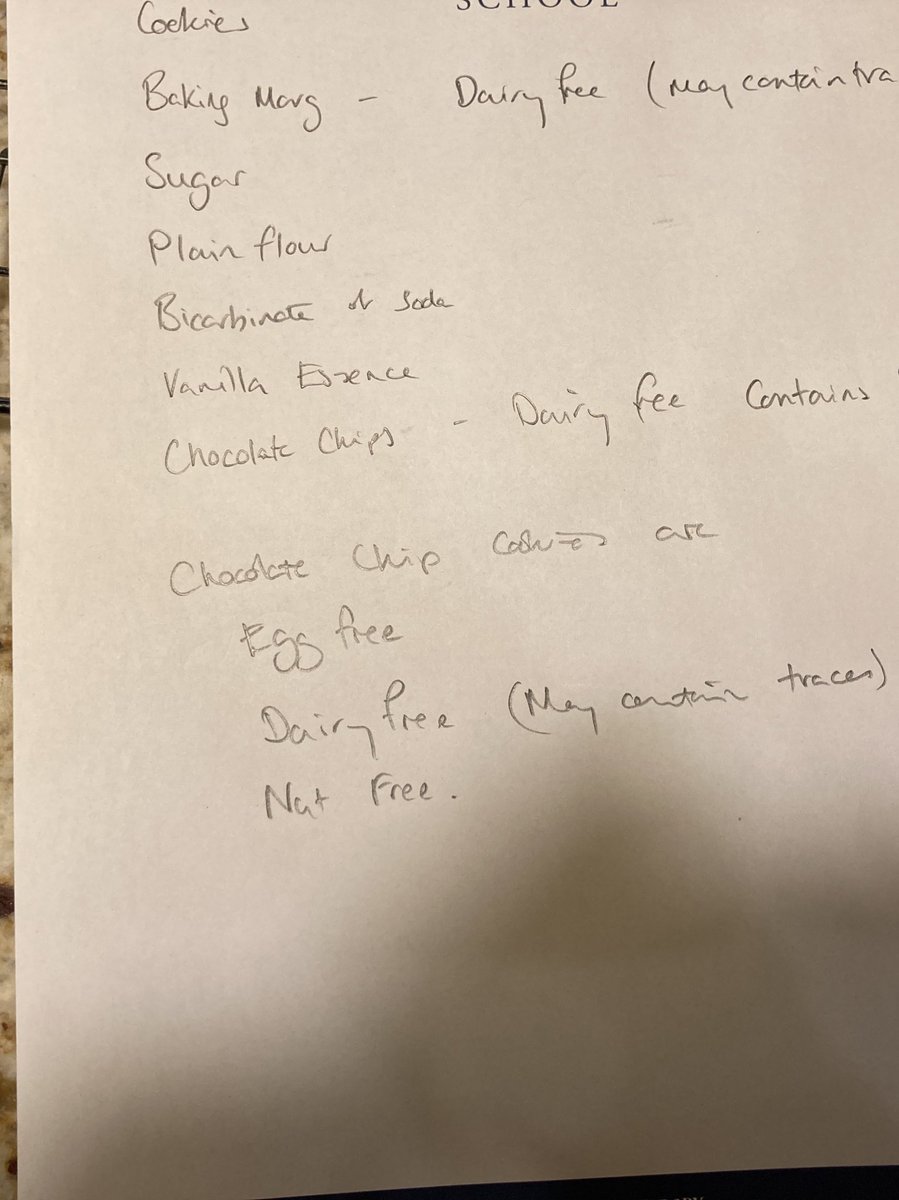 SCHOOL
Cookies
Baking Marg - Dairy free (May contain tra
Sugar
Plain flour
Bicarbinate of Soda
Vanilla Essence
Chocolate Chips - Dairy free Contains
Chocolate Chip Cookies are
Egg free
Dairy free (May contain traces)
Nut Free.